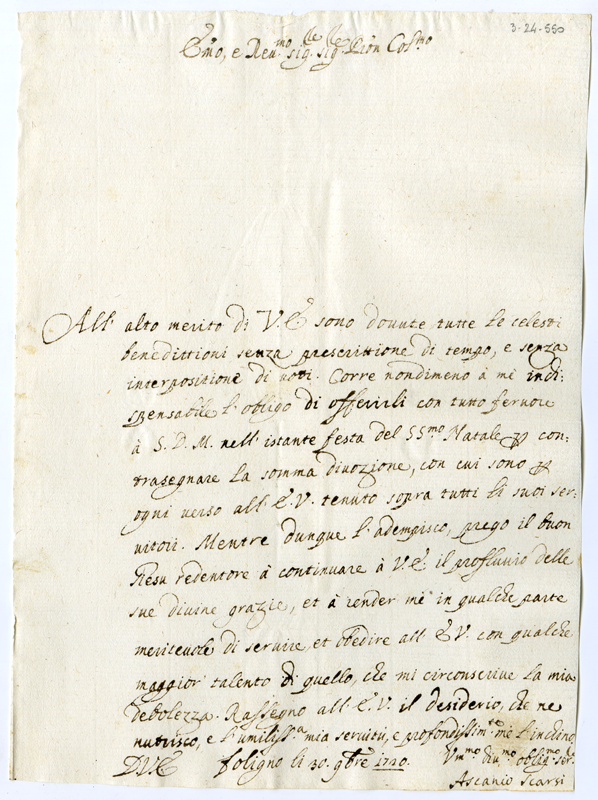 3-24-550
Em̃o, e Reu.mo sig.re sig.re Pr̃on Col.mo
All' alto merito di V.E. sono douute tutte le celesti
benedittioni senza prescrittione di tempo, e senza
interpositione di uoti. Corre nondimeno à me indi:
spensabile l'obligo di offerirli con tutto feruore
à S. D. M. nell' istante festa del SS.mo Natale p con:
trasegnare la somma diuozione, con cui sono p
ogni uerso all' E.V. tenuto sopra tutti li suoi ser:
uitori. Mentre dunque l'adempisco, prego il buon
Giesu redentore à continuare à V.E. il profluuio delle
sue diuine grazie, et à render me in qualche parte
meriteuole di seruire, et obedire all' E.V. con qualche
maggior talento di quello, che mi circonscriue la mia
debolezza. Rassegno all' E.V. il desiderio, che ne
nutrisco, e l'umiliss.a mia seruitù, e profondissim.te me l'inchino
D.V.E. foligno li 30. gbre 1720. Vm.mo diu.mo oblig.mo ser.
Ascanio Scarsi